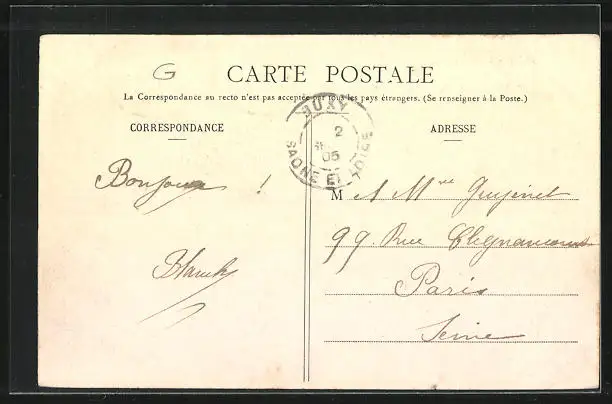 G
CARTE POSTALE
La Correspondance au recto n'est pas acceptée par tous les pays étrangers. (Se renseigner à la Poste.)
CORRESPONDANCE
ADRESSE
BUXY
2
05
SAONE ET LOIRE
Bonjour !
M A Mme
99. Rue Clignancourt
Paris
Seine